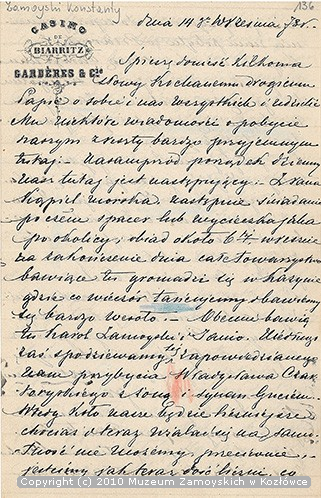 Zamoyski Konstanty
136
CASINO
DE
BIARRITZ
GARDÈRES & Cie
dnia 14 Września 73r.
Spieszę donieść kilkoma
słowy kochanemu drogiemu
Papie o sobie i nas wszystkich i udzielić
Mu niektóre wiadomości o pobycie
naszym zresztą bardzo przyjemnym
tutaj. Nasamprzód porządek dzienny
nasz tutaj jest następujący: Z rana
kąpiel morska następnie śniadanie
poczem spacer lub wycieczka jaka
po okolicy; obiad około 6
na zakończenie dnia całe towarzystwo
bawiące tu gromadzi się w kasynie
gdzie co wieczór tańcujemy i bawimy
się bardzo wesoło. — Obecnie bawią
tu Karol Zamoyski i
zaś spodziewamy się
nam przybycia Władysława Czar
toryskiego z żoną i synem
Wtedy koło nasze będzie liczniejsze
chociaż i teraz
nie możemy, przeciwnie,
jesteśmy jak teraz dość liczni, co
Copyright (c) 2010 Muzeum Zamoyskich w Kozłówce